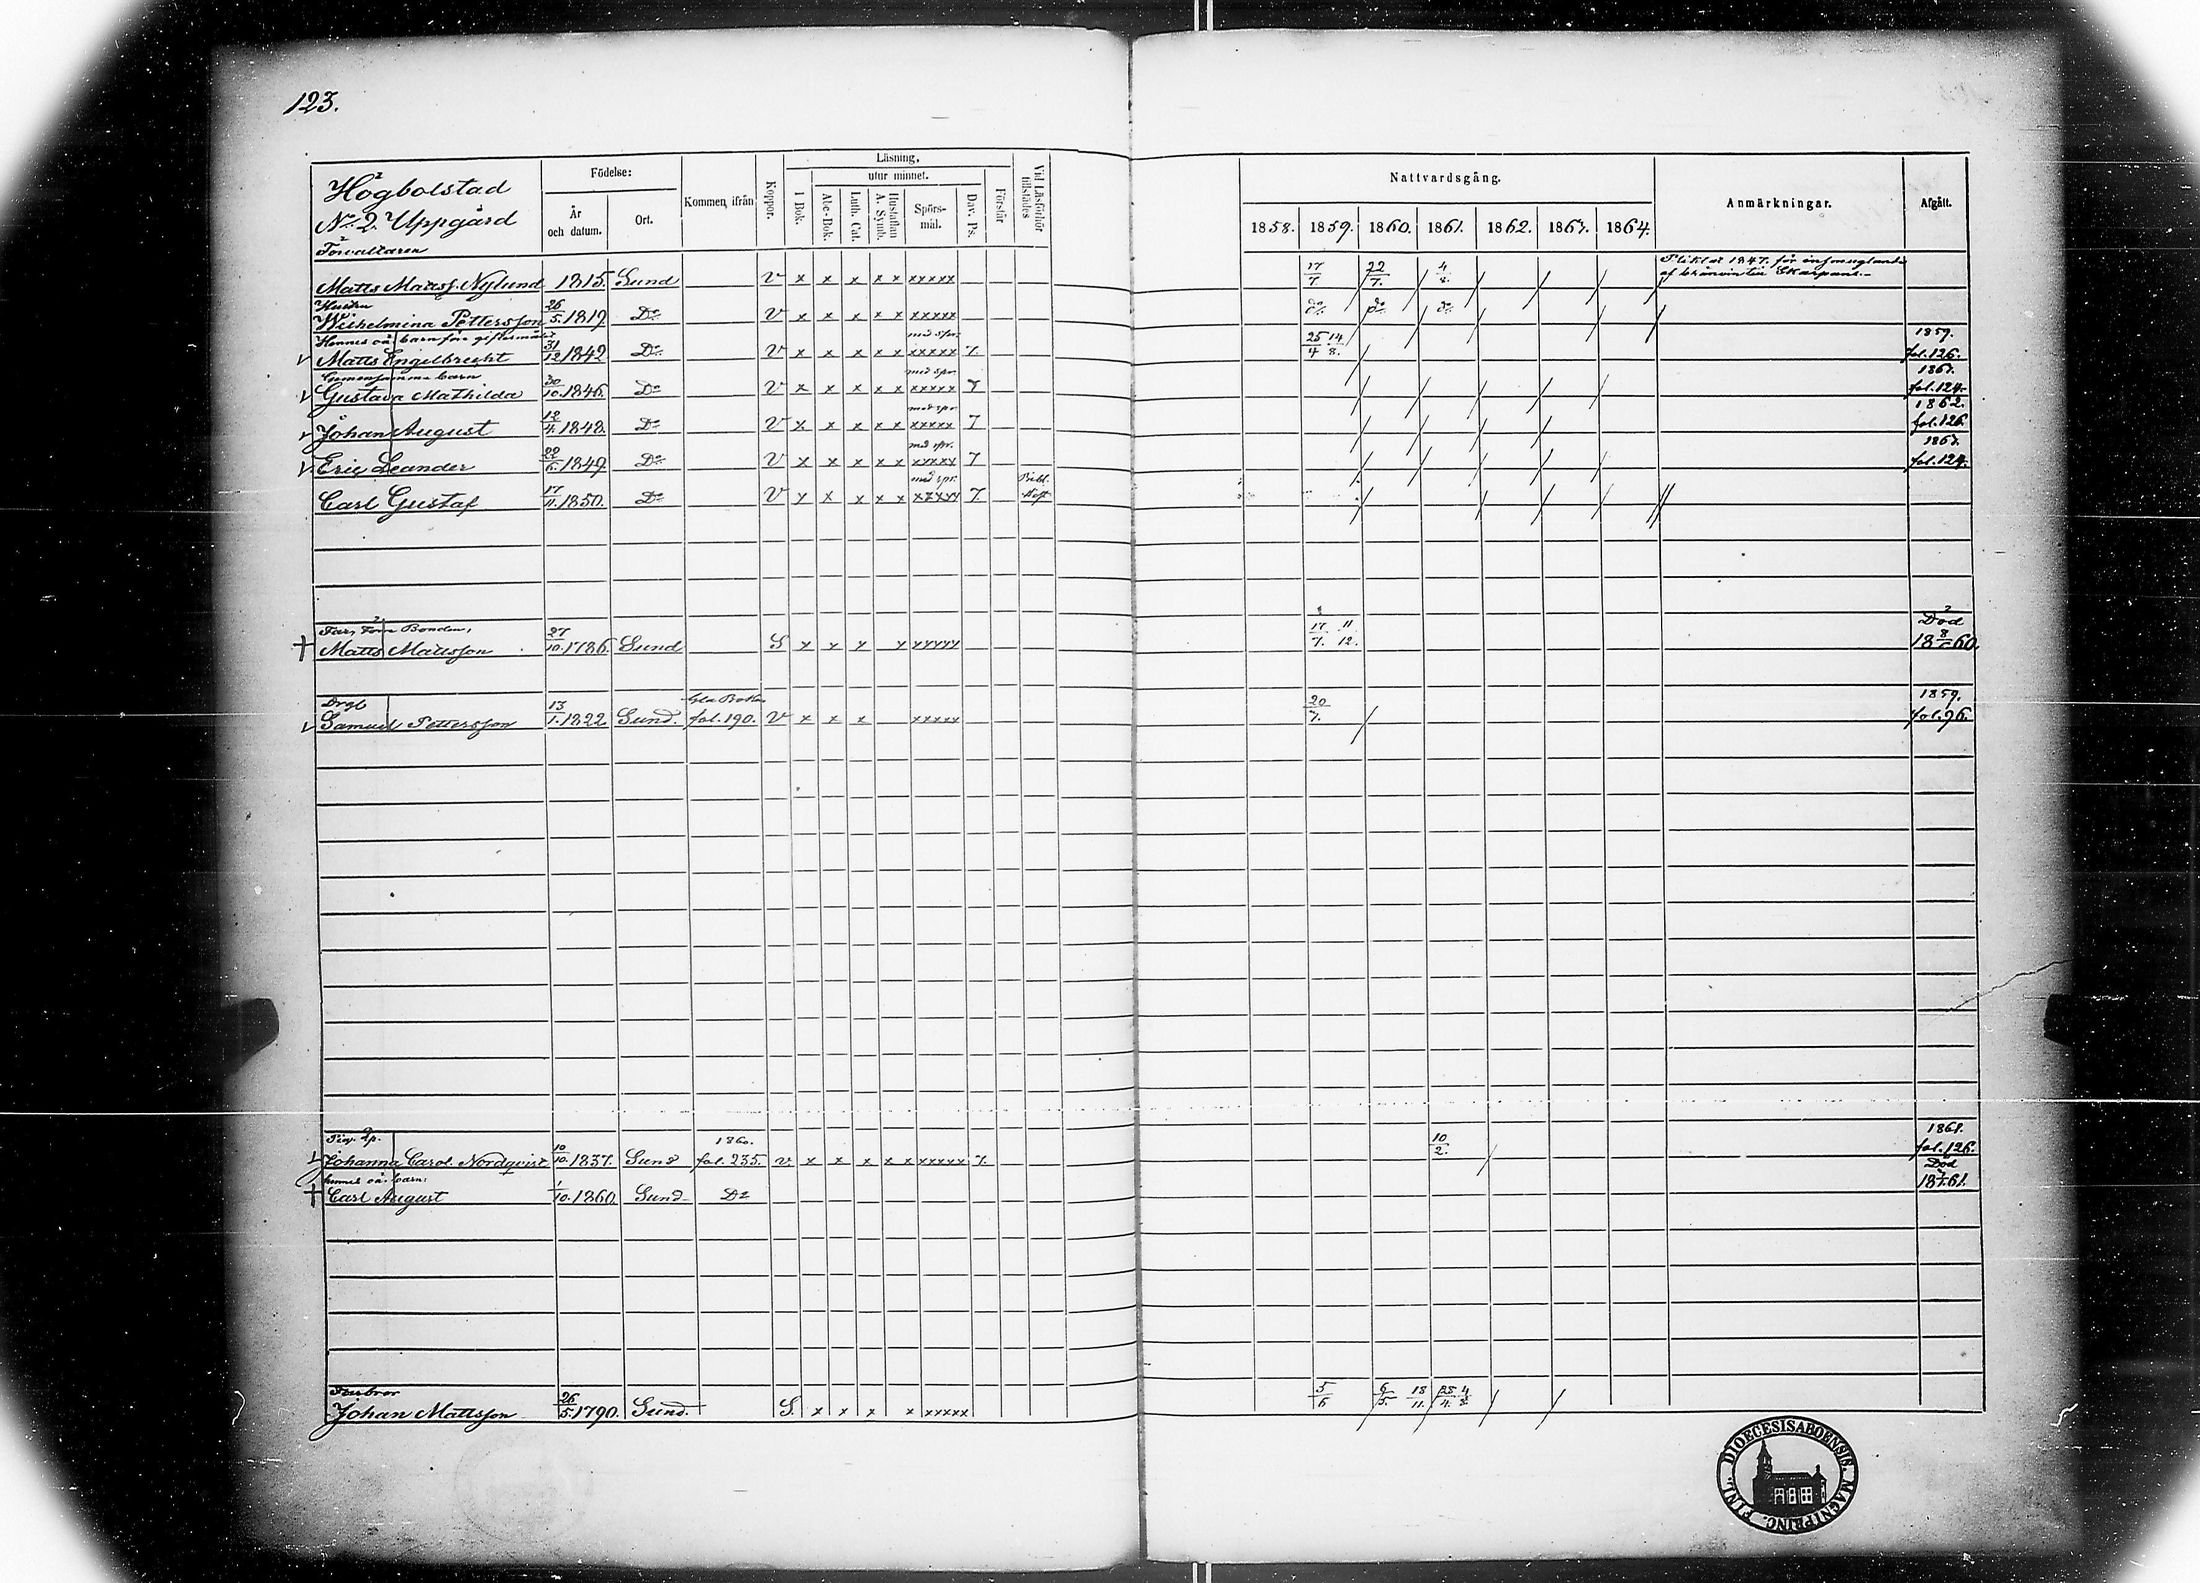 123.
Högbolstad
No 2. Uppgård
Förvaltaren
Födelse:
År och datum.
Ort.
Kommen, ifrån
Koppor.
Läsning,
utur minnet.
I Bok.
Abc-Bok.
Luth. Cat.
Hustaflan A. Symb.
Spörs-mål.
Dav. Ps.
Förstår
Vid Läsförhör tillstädes
Nattvardsgång.
1858. 1859. 1860. 1861. 1862. 1863. 1864.
Anmärkningar.
Afgått.
Matts Mattsf. Nylund 1815. Sund v x x x x x xxxxx 17/7 22/7. Pliktat 1847. för
af bränvin till Skarpans.
Hustru
Wilhelmina Pettersson 26/5 1819 Do v x x x x x xxxxx do do do
Hennes oä. barn före giftermålet
Matts Engelbrecht 31/12 1842 Do v x x x x x med spr. xxxxx 7. 25/4 14/8. 1859. fol. 126.
Gemensamma barn
Gustava Mathilda 30/10. 1846. Do v x x x x x med spr. xxxxx 7 1863. fol. 124.
Johan August 12/4. 1848. Do v x x x x x med spr. xxxxx 7 1862. fol. 126.
Eric Leander 1849 Do v x x x x x med spr. xxxxx 7 1863. fol. 124.
Carl Gustaf 17/11. 1850. Do v x x x x x med spr. xxxxx 7.
Far, Förre Bonden,
† Matts Mattsson 27/10. 1786. Sund S x x x x xxxxx 17/7. 11/12. Död 18 60.
Drgl
Samuel Pettersson 13/1. 1822 Sund. Gla Boken fol. 190. v x x x xxxxx 20/7. 1859. fol. 96.
Pig.
Johanna Carol. Nordqvist 10/10. 1837. Sund 1860. fol. 235. v. x x x x x xxxxx 7. 10/2. 1861. fol. 126.
hennes oä. barn:
† Carl August 1/10. 1860. Sund Do Död 18 61.
Farbror
Johan Mattsson 26/5. 1790. Sund. S. x x x x xxxxx 5/6 6/5. 18/11.
FINL. DIOECESIS ABOENSIS. MAGNI PRINC.